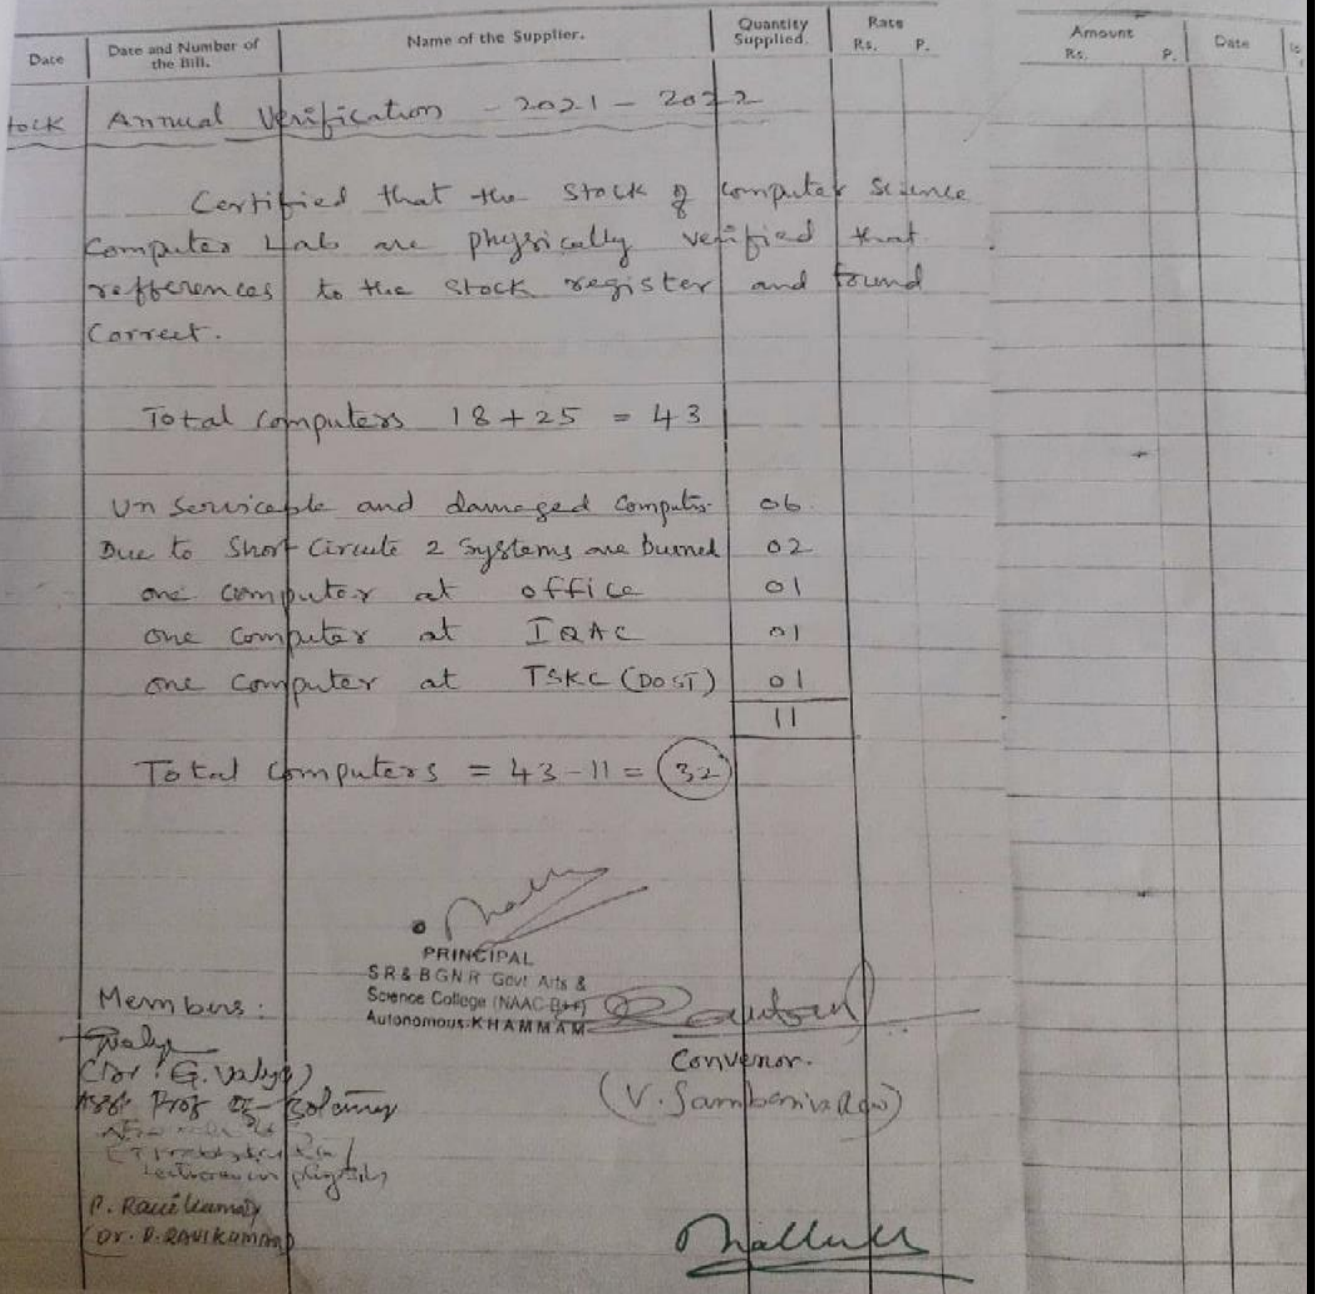 Date
Date and Number of the Bill.
Name of the Supplier.
Quantity Supplied.
Rate
Rs. P.
Amount
Rs. P.
Date
tock Annual Verification - 2021 - 2022
Certified that the Stock of Computer Science
Computer Lab are physically verified that
refferences to the stock register and found
Correct.
Total Computers 18 + 25 = 43
Un Servicable and damaged Computers 06
Due to Short Circute 2 Systems are burned 02
one computer at office 01
one computer at IQAC 01
one computer at TSKC (DOST) 01
11
Total Computers = 43 - 11 = 32
PRINCIPAL
S R & B G N R Govt Arts &
Science College (NAAC B++)
Autonomous: KHAMMAM
Members:
Convenor.
(Dr. G. Valya)
Asst Prof of Botany
(V. Sambasiva Rao)
Lecturer in physics
P. Ravi Kumar
(Dr. P. RAVIKUMAR)